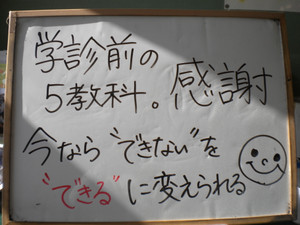 学診前の
5教科。感謝
今なら"できない"を
"できる"に変えられる